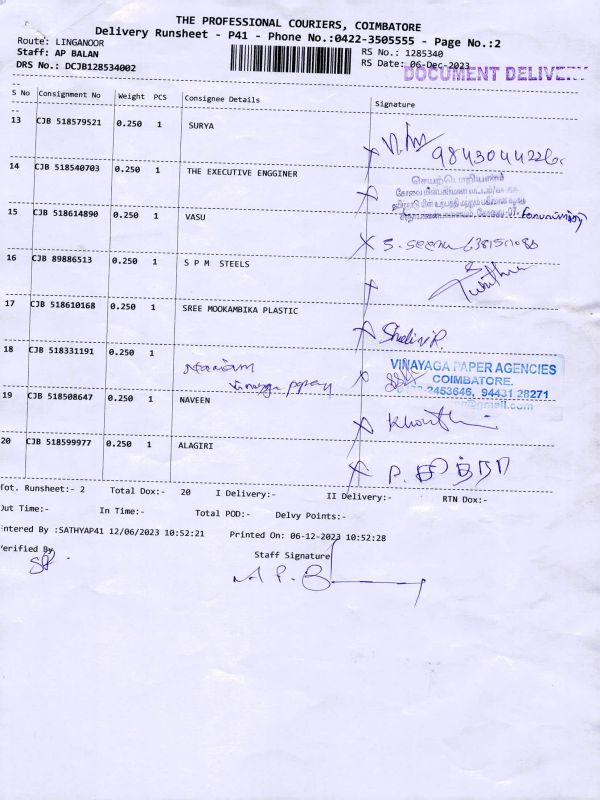 THE PROFESSIONAL COURIERS, COIMBATORE
Delivery Runsheet - P41 - Phone No.:0422-3505555 - Page No.:2
Route: LINGANOOR
Staff: AP BALAN
DRS No.: DCJB128534002
RS No.: 1285340
RS Date: 06-Dec-2023
DOCUMENT DELIVERY
S No Consignment No Weight PCS Consignee Details Signature
13 CJB 518579521 0.250 1 SURYA
9843044226
14 CJB 518540703 0.250 1 THE EXECUTIVE ENGGINER
செயற்பொறியாளர்
15 CJB 518614890 0.250 1 VASU
16 CJB 89886513 0.250 1 S P M STEELS
17 CJB 518610168 0.250 1 SREE MOOKAMBIKA PLASTIC
Shalini R.
18 CJB 518331191 0.250 1
VINAYAGA PAPER AGENCIES
COIMBATORE.
2453646, 94431 28271
@gmail.com
19 CJB 518508647 0.250 1 NAVEEN
20 CJB 518599977 0.250 1 ALAGIRI
P. சித்ரா
Tot. Runsheet:- 2 Total Dox:- 20 I Delivery:- II Delivery:- RTN Dox:-
Out Time:- In Time:- Total POD:- Delvy Points:-
Entered By :SATHYAP41 12/06/2023 10:52:21 Printed On: 06-12-2023 10:52:28
Verified By
Staff Signature